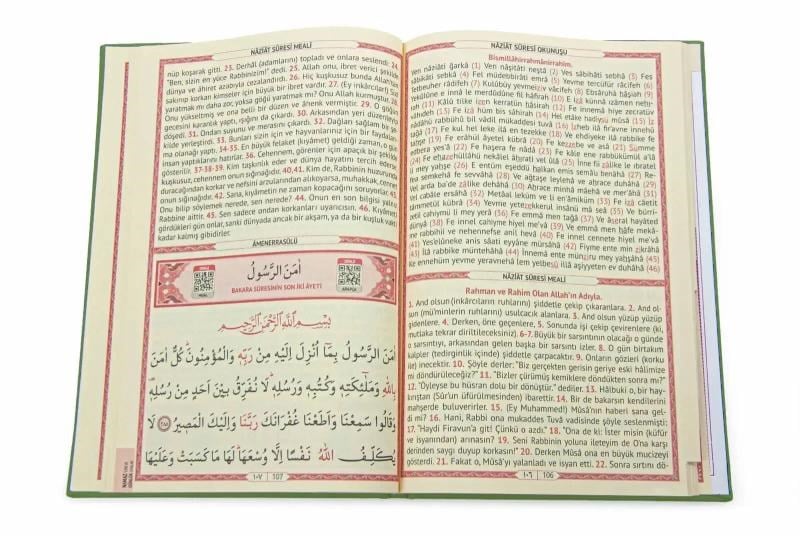 NÂZİÂT SÛRESİ OKUNUŞU
Bismillâhirrahmânirrahim.
Ven nâziâti ğarkâ (1) Ven nâşitâti neştâ (2) Ves sâbihâti sebhâ (3) Fes
sâbikâti sebkâ (4) Fel müdebbirâti emrâ (5) Yevme tercüfür râcifeh (6)
Tetbeuher râdifeh (7) Kulûbüy yevmeiziv vâcifeh (8) Ebsâruhâ hâşiah (9)
Yekûlûne e innâ le merdûdûne fil hâfirah (10) E izâ künnâ izâmen nehi-
rah (11) Kâlû tilke izen kerratün hâsirah (12) Fe innemâ hiye zecratüv
vâhideh (13) Fe izâ hüm bis sâhirah (14) Hel etâke hadîsü mûsâ (15) İz
nâdâhü rabbühû bil vâdil mükaddesi tuvâ (16) İzheb ilâ fir'avne innehû
tağâ (17) Fe kul hel leke ilâ en tezekke (18) Ve ehdiyeke ilâ rabbike fe
tahşe (19) Fe erâhül âyetel kübrâ (20) Fe kezzebe ve asâ (21) Sümme
edbera yes'â (22) Fe haşera fe nâdâ (23) Fe kâle ene rabbükümül a'lâ
(24) Fe ehazehüllâhü nekâlel âhirati vel ûlâ (25) İnne fî zâlike le ibratel
li mey yahşe (26) E entüm eşeddü halkan emis semâü benâhâ (27) Re-
fea semkehâ fe sevvâhâ (28) Ve ağtaşe leylehâ ve ahrace duhâhâ (29)
Vel arda ba'de zâlike dehâhâ (30) Ahrace minhâ mâehâ ve mer'âhâ (31)
Vel cibâle ersâhâ (32) Metâal leküm ve li en'âmiküm (33) Fe izâ câetit
tâmmetül kübrâ (34) Yevme yetezekkerul insânü mâ seâ (35) Ve bürri-
zetil cahîymü li mey yerâ (36) Fe emmâ men tağâ (37) Ve âseral hayâted
dünyâ (38) Fe innel cahîyme hiyel me'vâ (39) Ve emmâ men hâfe mekâ-
me rabbihî ve nehennefse anil hevâ (40) Fe innel cennete hiyel me'vâ
(41) Yes'elûneke anis sâati eyyâne mürsâhâ (42) Fîyme ente min zikrâhâ
(43) İlâ rabbike müntehâhâ (44) İnnemâ ente münziru mey yahşâhâ (45)
Ke ennehüm yevme yeravnehâ lem yelbesû illâ aşiyyeten ev duhâhâ (46)
NÂZİÂT SÛRESİ MEALİ
Rahman ve Rahim Olan Allah'ın Adıyla.
1. And olsun (inkârcıların ruhlarını) şiddetle çekip çıkaranlara. 2. And ol-
sun (mü'minlerin ruhlarını) usulcacık alanlara. 3. And olsun yüzüp yüzüp
gidenlere. 4. Derken, öne geçenlere, 5. Sonunda işi çekip çevirenlere (ki,
mutlaka tekrar diriltileceksiniz). 6-7. Büyük bir sarsıntının olacağı o günde
o sarsıntıyı, arkasından gelen başka bir sarsıntı izler. 8. O gün birtakım
kalpler (tedirginlik içinde) şiddetle çarpacaktır. 9. Onların gözleri (korku
ile) inecektir. 10. Şöyle derler: "Biz gerçekten gerisin geriye eski hâlimize
mi döndürüleceğiz?" 11. "Bizler çürümüş kemiklere döndükten sonra mı?"
12. "Öyleyse bu hüsran dolu bir dönüştür." dediler. 13. Hâlbuki o, bir hay-
kırıştan (Sûr'un üfürülmesinden) ibarettir. 14. Bir de bakarsın kendilerini
mahşerde buluverirler. 15. (Ey Muhammed!) Mûsâ'nın haberi sana gel-
di mi? 16. Hani, Rabbi ona mukaddes Tuvâ vadisinde şöyle seslenmişti:
17. "Haydi Firavun'a git! Çünkü o azdı." 18. "Ona de ki: İster misin (küfür
ve isyanından) arınasın? 19. Seni Rabbinin yoluna ileteyim de O'na karşı
derinden saygı duyup korkasın!" 20. Derken Mûsâ ona en büyük mucizeyi
gösterdi. 21. Fakat o, Mûsâ'yı yalanladı ve isyan etti. 22. Sonra sırtını dö-
١٠٦ 106
NÂZİÂT SÛRESİ MEALİ
nüp koşarak gitti. 23. Derhâl (adamlarını) topladı ve onlara seslendi: 24.
"Ben, sizin en yüce Rabbinizim!" dedi. 25. Allah onu, ibret verici şekilde
dünya ve âhiret azabıyla cezalandırdı. 26. Hiç kuşkusuz bunda Allah'tan
sakınıp korkan kimseler için büyük bir ibret vardır. 27. (Ey inkârcılar!) Sizi
yaratmak mı daha zor, yoksa göğü yaratmak mı? Onu Allah kurmuştur. 28.
Onu yükseltmiş ve ona belli bir düzen ve âhenk vermiştir. 29. O göğün
gecesini karanlık yaptı, ışığını da çıkardı. 30. Arkasından yeri düzenleyip
döşedi. 31. Ondan suyunu ve merasını çıkardı. 32. Dağları sağlam bir şe-
kilde yerleştirdi. 33. Bunları sizin için ve hayvanlarınız için bir faydalan-
ma olanağı yaptı. 34-35. En büyük felaket (kıyamet) geldiği zaman, o gün
insan yaptıklarını hatırlar. 36. Cehennem, görenler için apaçık bir şekilde
gösterilir. 37-38-39. Kim taşkınlık eder ve dünya hayatını tercih ederse,
kuşkusuz, cehennem onun sığınağıdır. 40,41. Kim de, Rabbinin huzurunda
duracağından korkar ve nefsini arzularından alıkoyarsa, muhakkak, cennet
onun sığınağıdır. 42. Sana, kıyametin ne zaman kopacağını soruyorlar. 43.
Onu bilip söylemek nerede, sen nerede? 44. Onun en son bilgisi yalnız
Rabbine aittir. 45. Sen sadece ondan korkanları uyarıcısın. 46. Kıyameti
gördükleri gün onlar, sanki dünyada ancak bir akşam, ya da bir kuşluk vakti
kadar kalmış gibidirler.
ÂMENERRASÛLÜ
اٰمَنَ الرَّسُولُ
BAKARA SÛRESİNİN SON İKİ ÂYETİ
DİNLE
ARAPÇA
DİNLE
MEAL
بِسْمِ اللّٰهِ الرَّحْمٰنِ الرَّحِيمِ
اٰمَنَ الرَّسُولُ بِمَٓا اُنْزِلَ اِلَيْهِ مِنْ رَبِّهٖ وَالْمُؤْمِنُونَ كُلٌّ اٰمَنَ
بِاللّٰهِ وَمَلٰٓئِكَتِهٖ وَكُتُبِهٖ وَرُسُلِهٖ لَا نُفَرِّقُ بَيْنَ اَحَدٍ مِنْ رُسُلِهٖ
وَقَالُوا سَمِعْنَا وَاَطَعْنَا غُفْرَانَكَ رَبَّنَا وَاِلَيْكَ الْمَصٖيرُ ﴿٢٨٥﴾ لَا
يُكَلِّفُ اللّٰهُ نَفْسًا اِلَّا وُسْعَهَا لَهَا مَا كَسَبَتْ وَعَلَيْهَا
١٠٧ 107